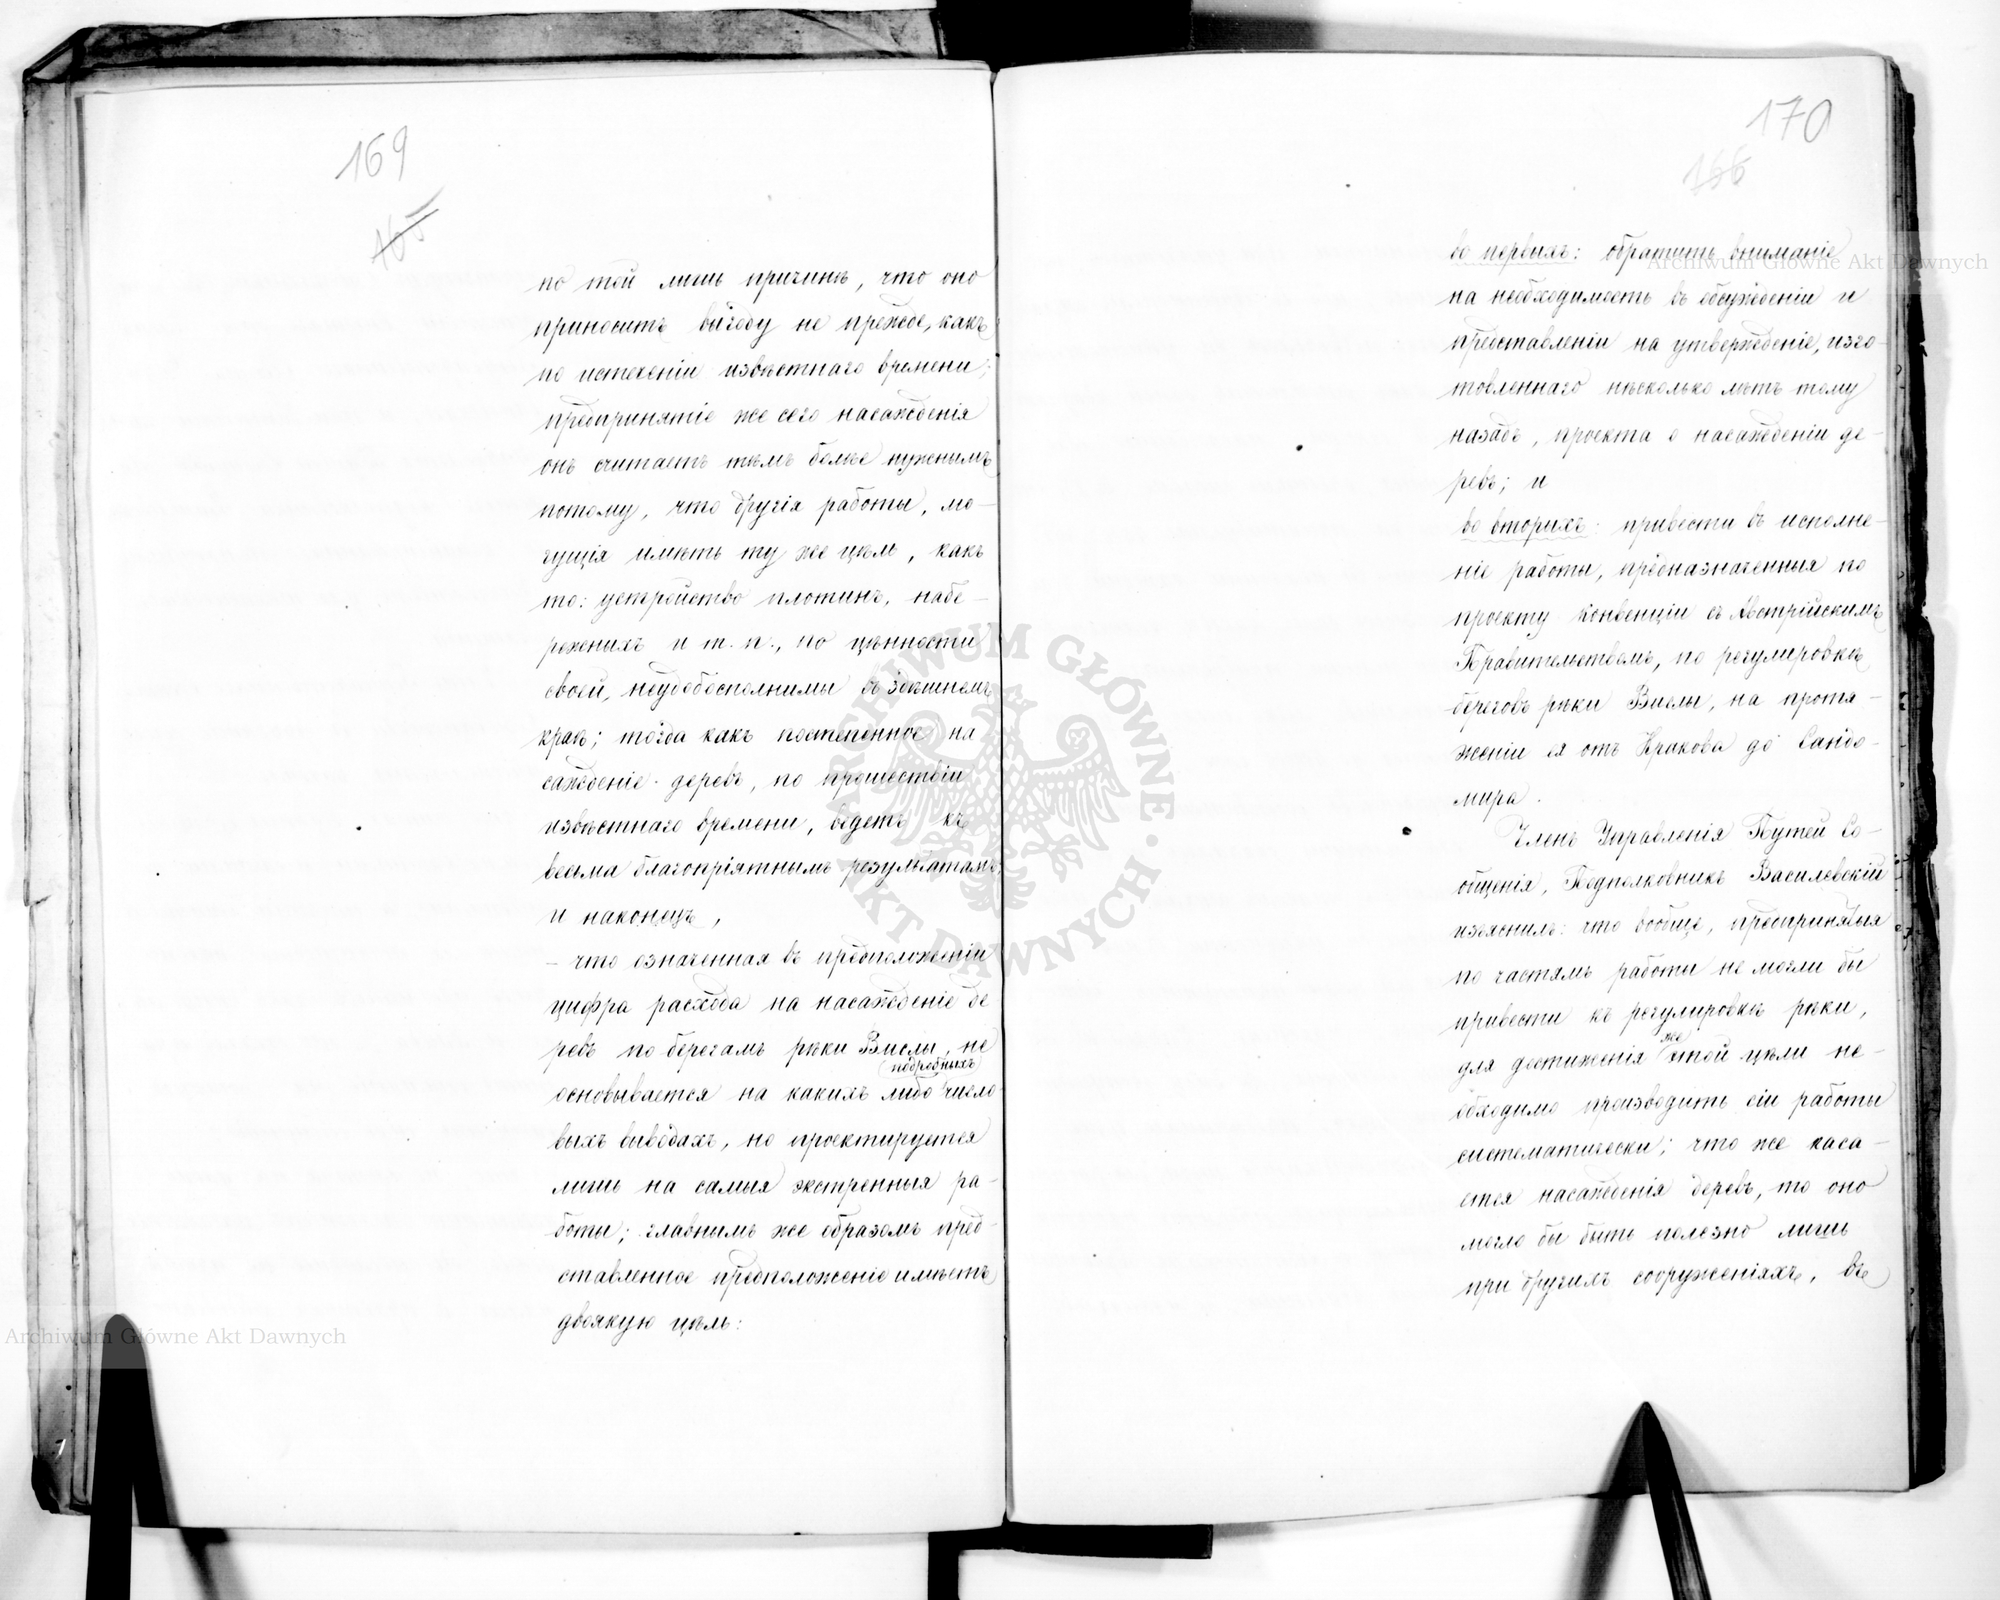 169
165
по той лишь причинѣ, что оно
приноситъ выгоду не прежде, какъ
по истеченіи извѣстнаго времени;
предпринятіе же сего насажденія
онъ считаетъ тѣмъ болѣе нужнымъ
потому, что другія работы, мо-
гущія имѣть ту же цѣль, какъ
то: устройство плотинъ, набе-
режныхъ и т. п., по цѣнности
своей, неудобоисполнимы въ здѣшнемъ
краѣ; тогда какъ постепенное на
сажденіе деревъ, по прошествіи
извѣстнаго времени, ведетъ къ
весьма благопріятнымъ результатамъ;
и наконецъ,
- что означенная въ предположеніи
цифра расхода на насажденіе де
ревъ по берегамъ рѣки Вислы, не
(подробныхъ)
основывается на какихъ либо число-
выхъ выводахъ, но проектируется
лишь на самыя экстренныя ра-
боты; главнымъ же образомъ пред-
ставленное предположеніе имѣетъ
двоякую цѣль:
170
166
во первыхъ: обратить вниманіе
на необходимость въ обсужденіи и
представленіи на утвержденіе, изго-
товленнаго нѣсколько лѣтъ тому
назадъ, проекта о насажденіи де-
ревъ; и
во вторыхъ: привести въ исполне-
ніе работы, предназначенныя по
проекту конвенціи съ Австрійскимъ
Правительствомъ, по регулировкѣ
береговъ рѣки Вислы, на протя-
женіи ея отъ Кракова до Сандо-
мира.
Членъ Управленія Путей Со-
общенія, Подполковникъ Василевскій
изъяснилъ: что вообще, предпринятыя
по частямъ работы не могли бы
привести къ регулировкѣ рѣки,
же
для достиженія этой цѣли не-
обходимо производить сіи работы
систематически; что же каса-
ется насажденія деревъ, то оно
могло бы быть полезно лишь
при другихъ сооруженіяхъ, въ
ARCHIWUM GŁÓWNE AKT DAWNYCH
Archiwum Główne Akt Dawnych
Archiwum Główne Akt Dawnych